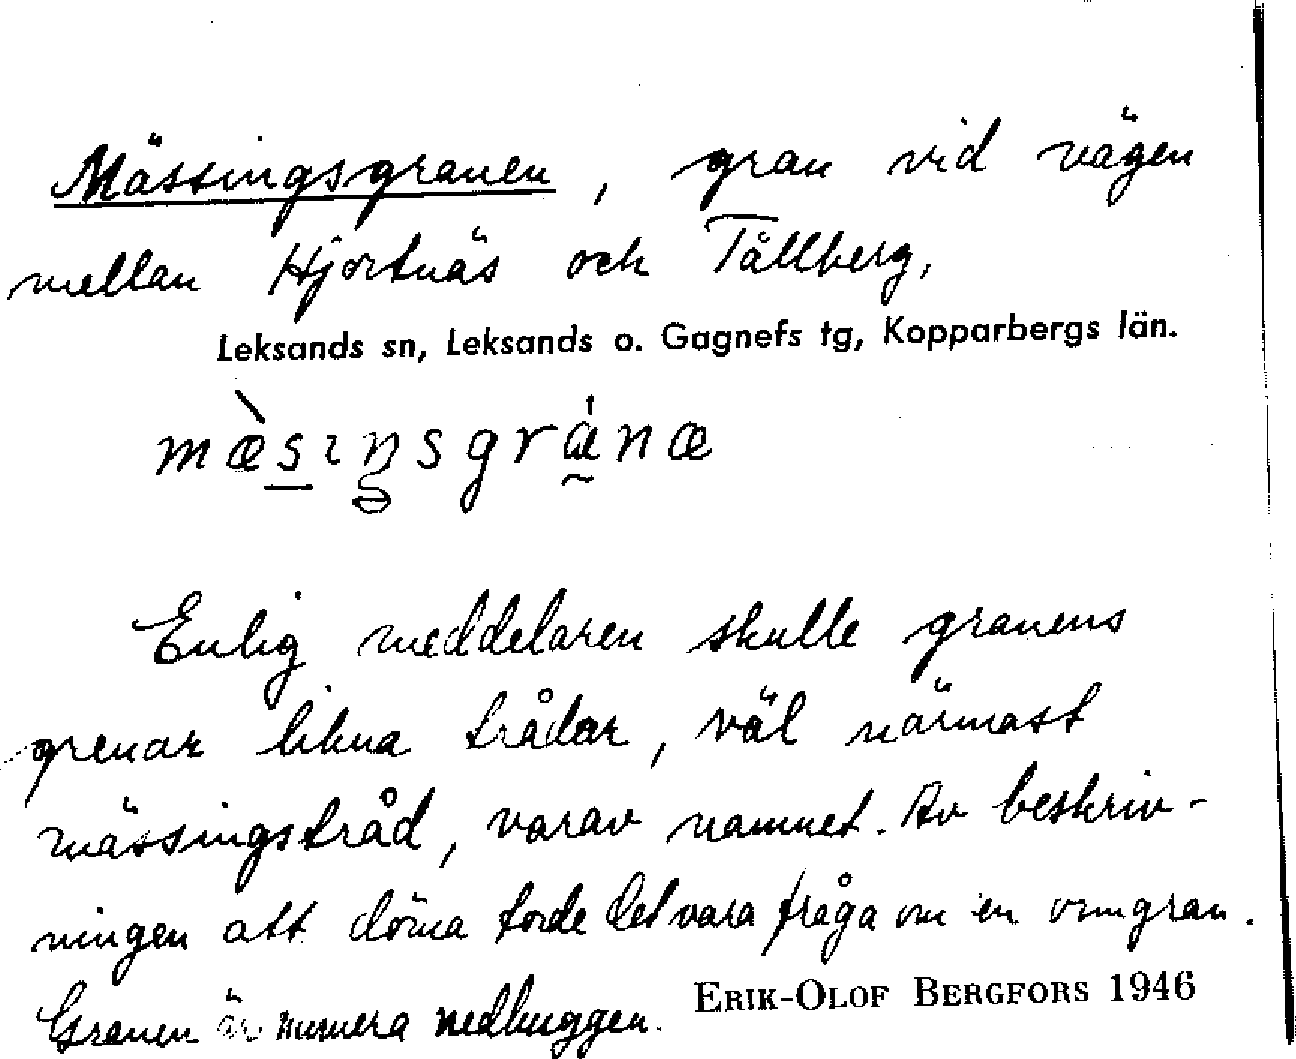 Mässingsgranen, gran vid vägen
mellan Hjortnäs och Tållberg,
Leksands sn, Leksands o. Gagnefs tg, Kopparbergs län.
Enlig meddelaren skulle granens
grenar likna trådar, väl närmast
mässingstråd, varav namnet. Av beskriv-
ningen att döma torde det vara fråga om en ormgran.
Granen är numera nedhuggen.
ERIK-OLOF BERGFORS 1946